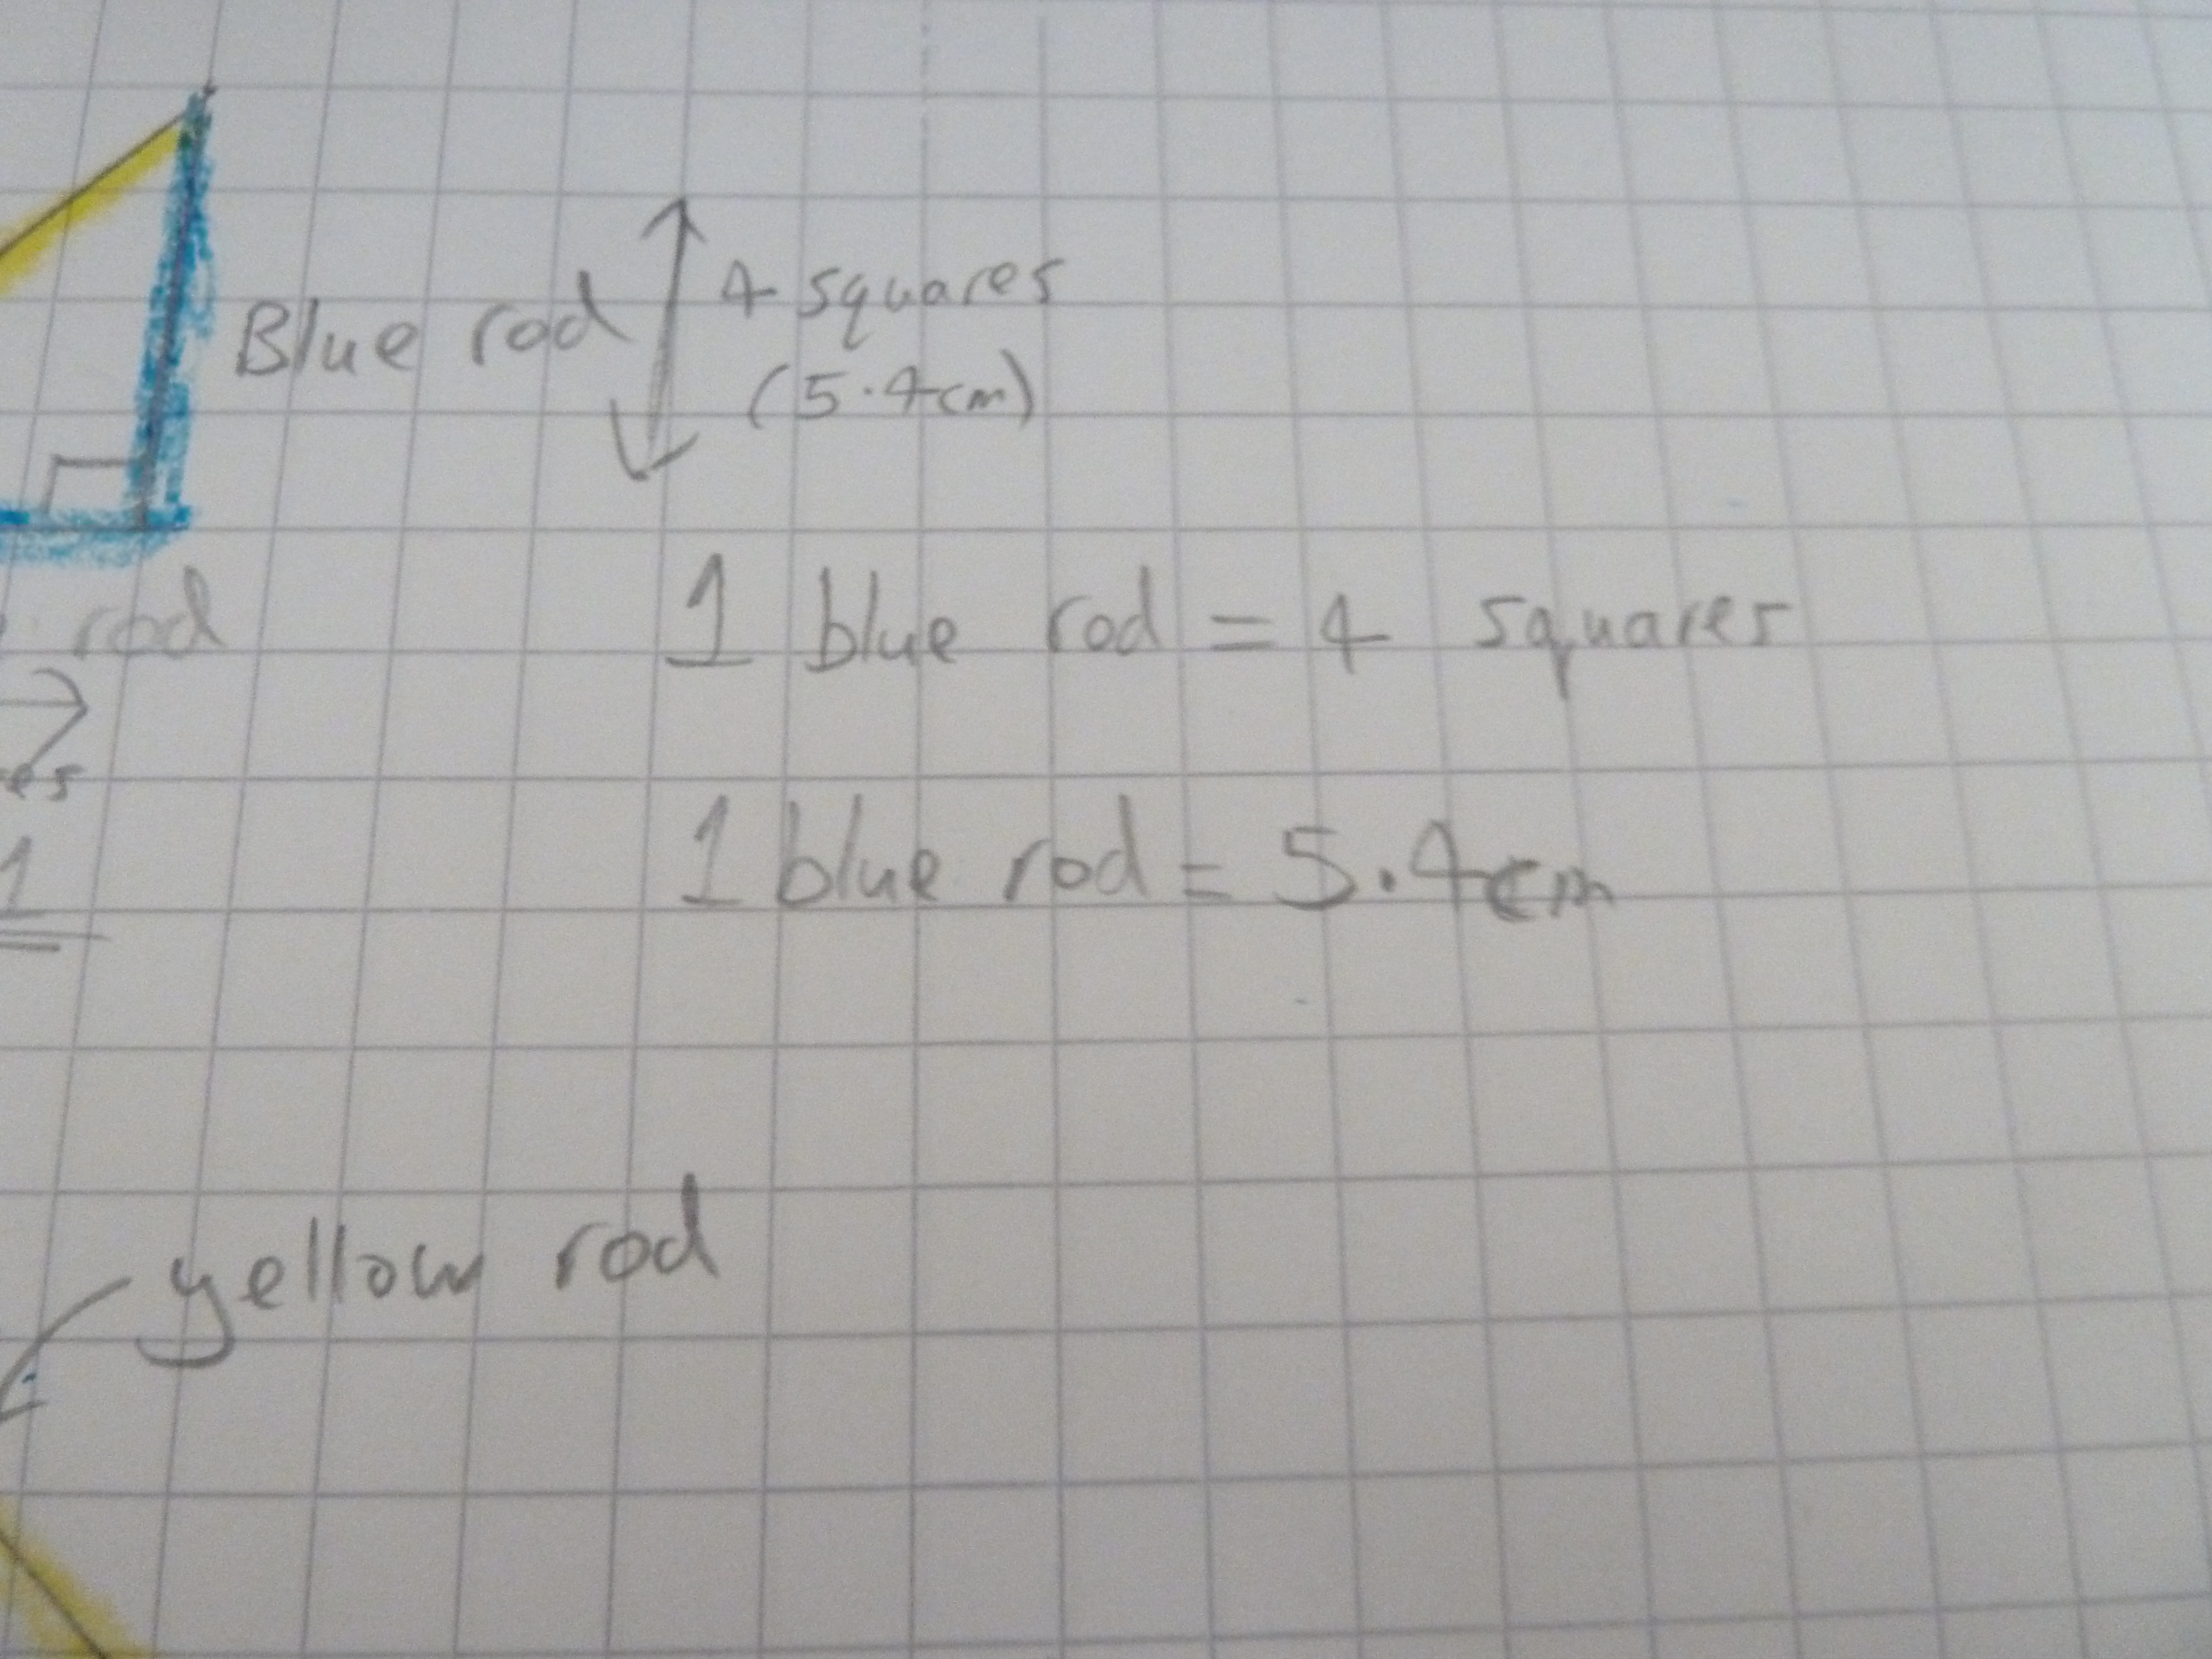 Blue rod
4 squares
(5.4cm)
1 blue rod = 4 squares
rod
1 blue rod = 5.4cm
1
yellow rod